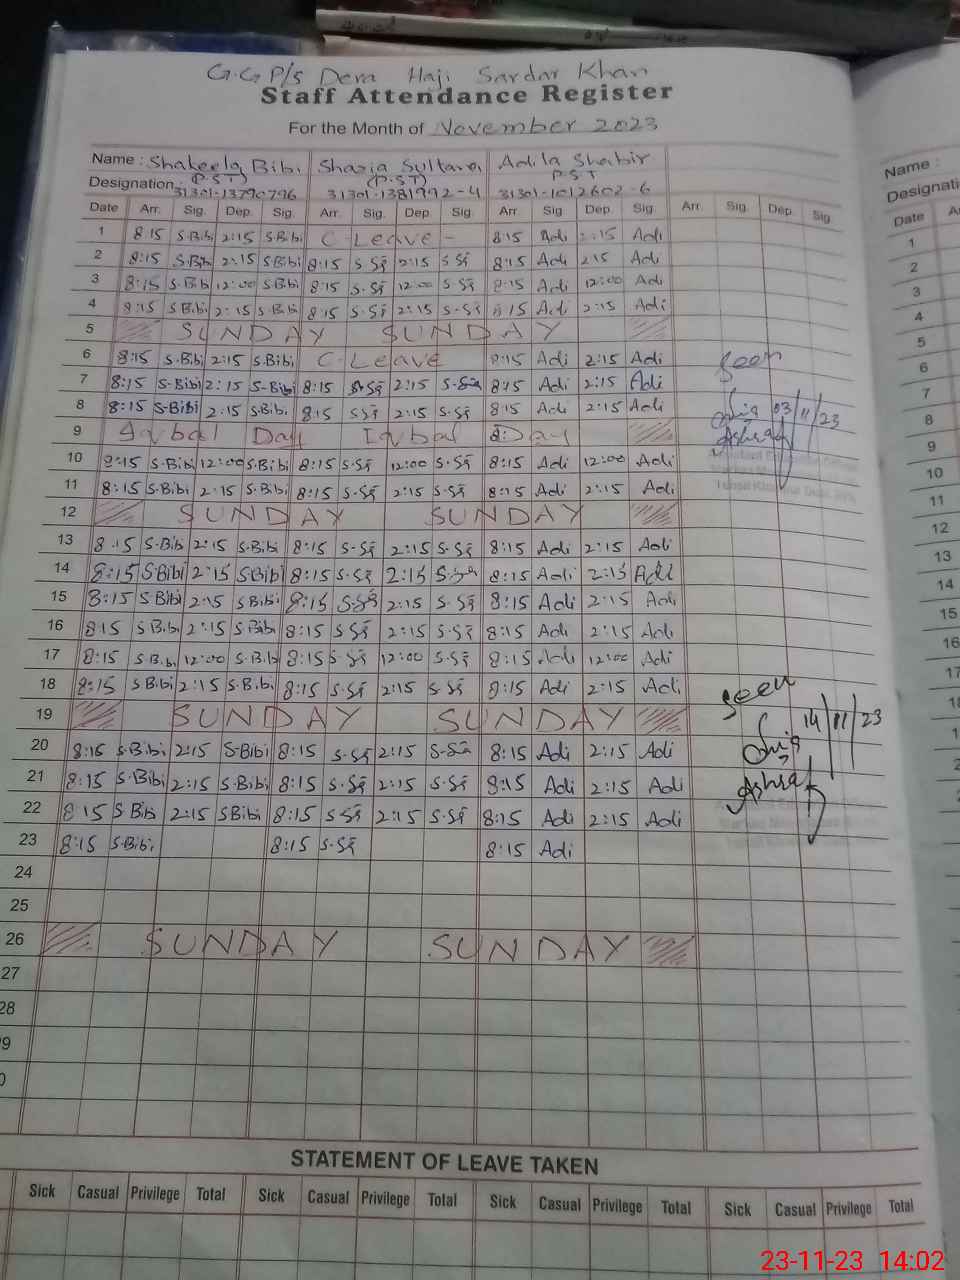 G.G P/S Dera Haji Sardar Khan
Staff Attendance Register
For the Month of November 2023
Name : Shakeela Bibi Shazia Sultana Adila Shabir
Designation (P.S.T) (P.S.T) P.S.T
31301-13790796 31301-1381992-4 31301-1012602-6
Date Arr. Sig. Dep. Sig. Arr. Sig. Dep. Sig. Arr Sig Dep. Sig. Arr. Sig. Dep. Sig
1 8:15 S.Bibi 2:15 S.Bibi C-Leave - 8:15 Adi 2:15 Adi
2 8:15 S.Bibi 2:15 S.Bibi 8:15 S.Sā 2:15 S.Sā 8:15 Adi 2:15 Adi
3 8:15 S.Bibi 12:00 S.Bibi 8:15 S.Sā 12:00 S.Sā 8:15 Adi 12:00 Adi
4 8:15 S.Bibi 2:15 S.Bibi 8:15 S.Sā 2:15 S.Sā 8:15 Adi 2:15 Adi
5 SUNDAY SUNDAY
6 8:15 S.Bibi 2:15 S.Bibi C-Leave 8:15 Adi 2:15 Adi
7 8:15 S.Bibi 2:15 S.Bibi 8:15 S.Sā 2:15 S.Sā 8:15 Adi 2:15 Adi
8 8:15 S.Bibi 2:15 S.Bibi 8:15 S.Sā 2:15 S.Sā 8:15 Adi 2:15 Adi
9 Iqbal Day Iqbal Day
10 8:15 S.Bibi 12:00 S.Bibi 8:15 S.Sā 12:00 S.Sā 8:15 Adi 12:00 Adi
11 8:15 S.Bibi 2:15 S.Bibi 8:15 S.Sā 2:15 S.Sā 8:15 Adi 2:15 Adi
12 SUNDAY SUNDAY
13 8:15 S.Bibi 2:15 S.Bibi 8:15 S.Sā 2:15 S.Sā 8:15 Adi 2:15 Adi
14 8:15 S.Bibi 2:15 S.Bibi 8:15 S.Sā 2:15 S.Sā 8:15 Adi 2:15 Adi
15 8:15 S.Bibi 2:15 S.Bibi 8:15 S.Sā 2:15 S.Sā 8:15 Adi 2:15 Adi
16 8:15 S.Bibi 2:15 S.Bibi 8:15 S.Sā 2:15 S.Sā 8:15 Adi 2:15 Adi
17 8:15 S.Bibi 12:00 S.Bibi 8:15 S.Sā 12:00 S.Sā 8:15 Adi 12:00 Adi
18 8:15 S.Bibi 2:15 S.Bibi 8:15 S.Sā 2:15 S.Sā 8:15 Adi 2:15 Adi
19 SUNDAY SUNDAY
20 8:15 S.Bibi 2:15 S.Bibi 8:15 S.Sā 2:15 S.Sā 8:15 Adi 2:15 Adi
21 8:15 S.Bibi 2:15 S.Bibi 8:15 S.Sā 2:15 S.Sā 8:15 Adi 2:15 Adi
22 8:15 S.Bibi 2:15 S.Bibi 8:15 S.Sā 2:15 S.Sā 8:15 Adi 2:15 Adi
23 8:15 S.Bibi 8:15 S.Sā 8:15 Adi
24
25
26 SUNDAY SUNDAY
27
28
9
0
Seen
03/11/23
Ashraf
Seen
14/11/23
Ashraf
STATEMENT OF LEAVE TAKEN
Sick Casual Privilege Total Sick Casual Privilege Total Sick Casual Privilege Total Sick Casual Privilege Total
Name :
Designati
Date A
1
2
3
4
5
6
7
8
9
10
11
12
13
14
15
16
17
23-11-23 14:02